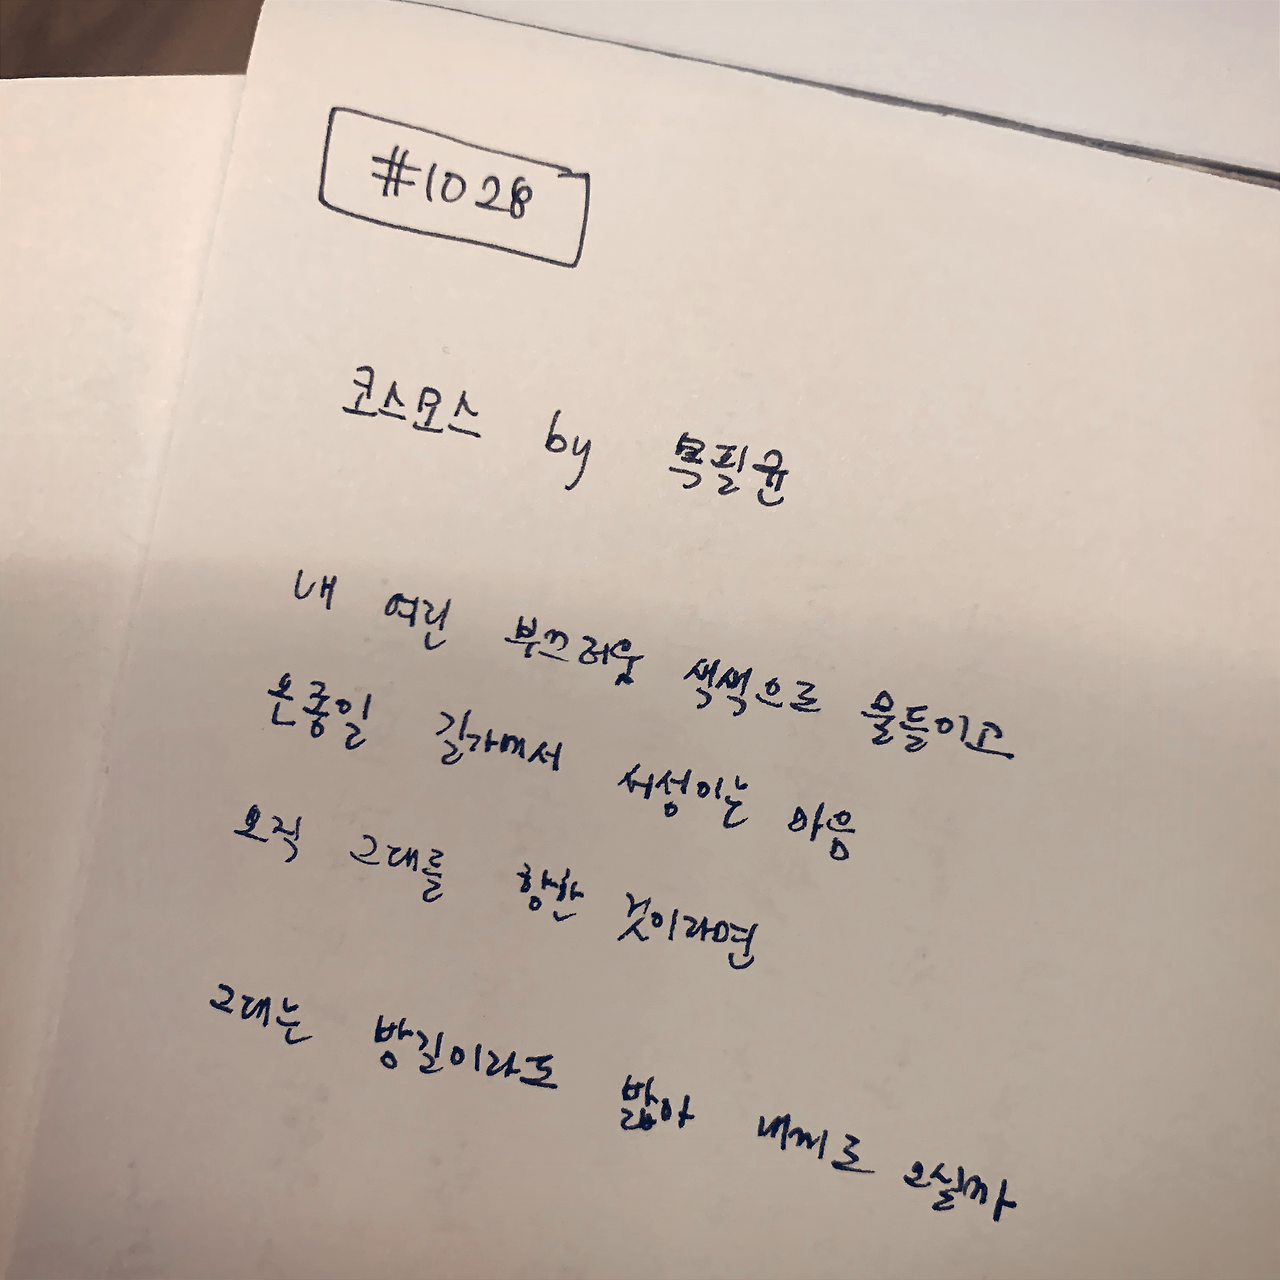 #1028
코스모스 by 목필균
내 여린 부끄러움 색색으로 물들이고
온종일 길가에서 서성이는 마음
오직 그대를 향한 것이라면
그대는 밤길이라도 밟아 내게로 오실까